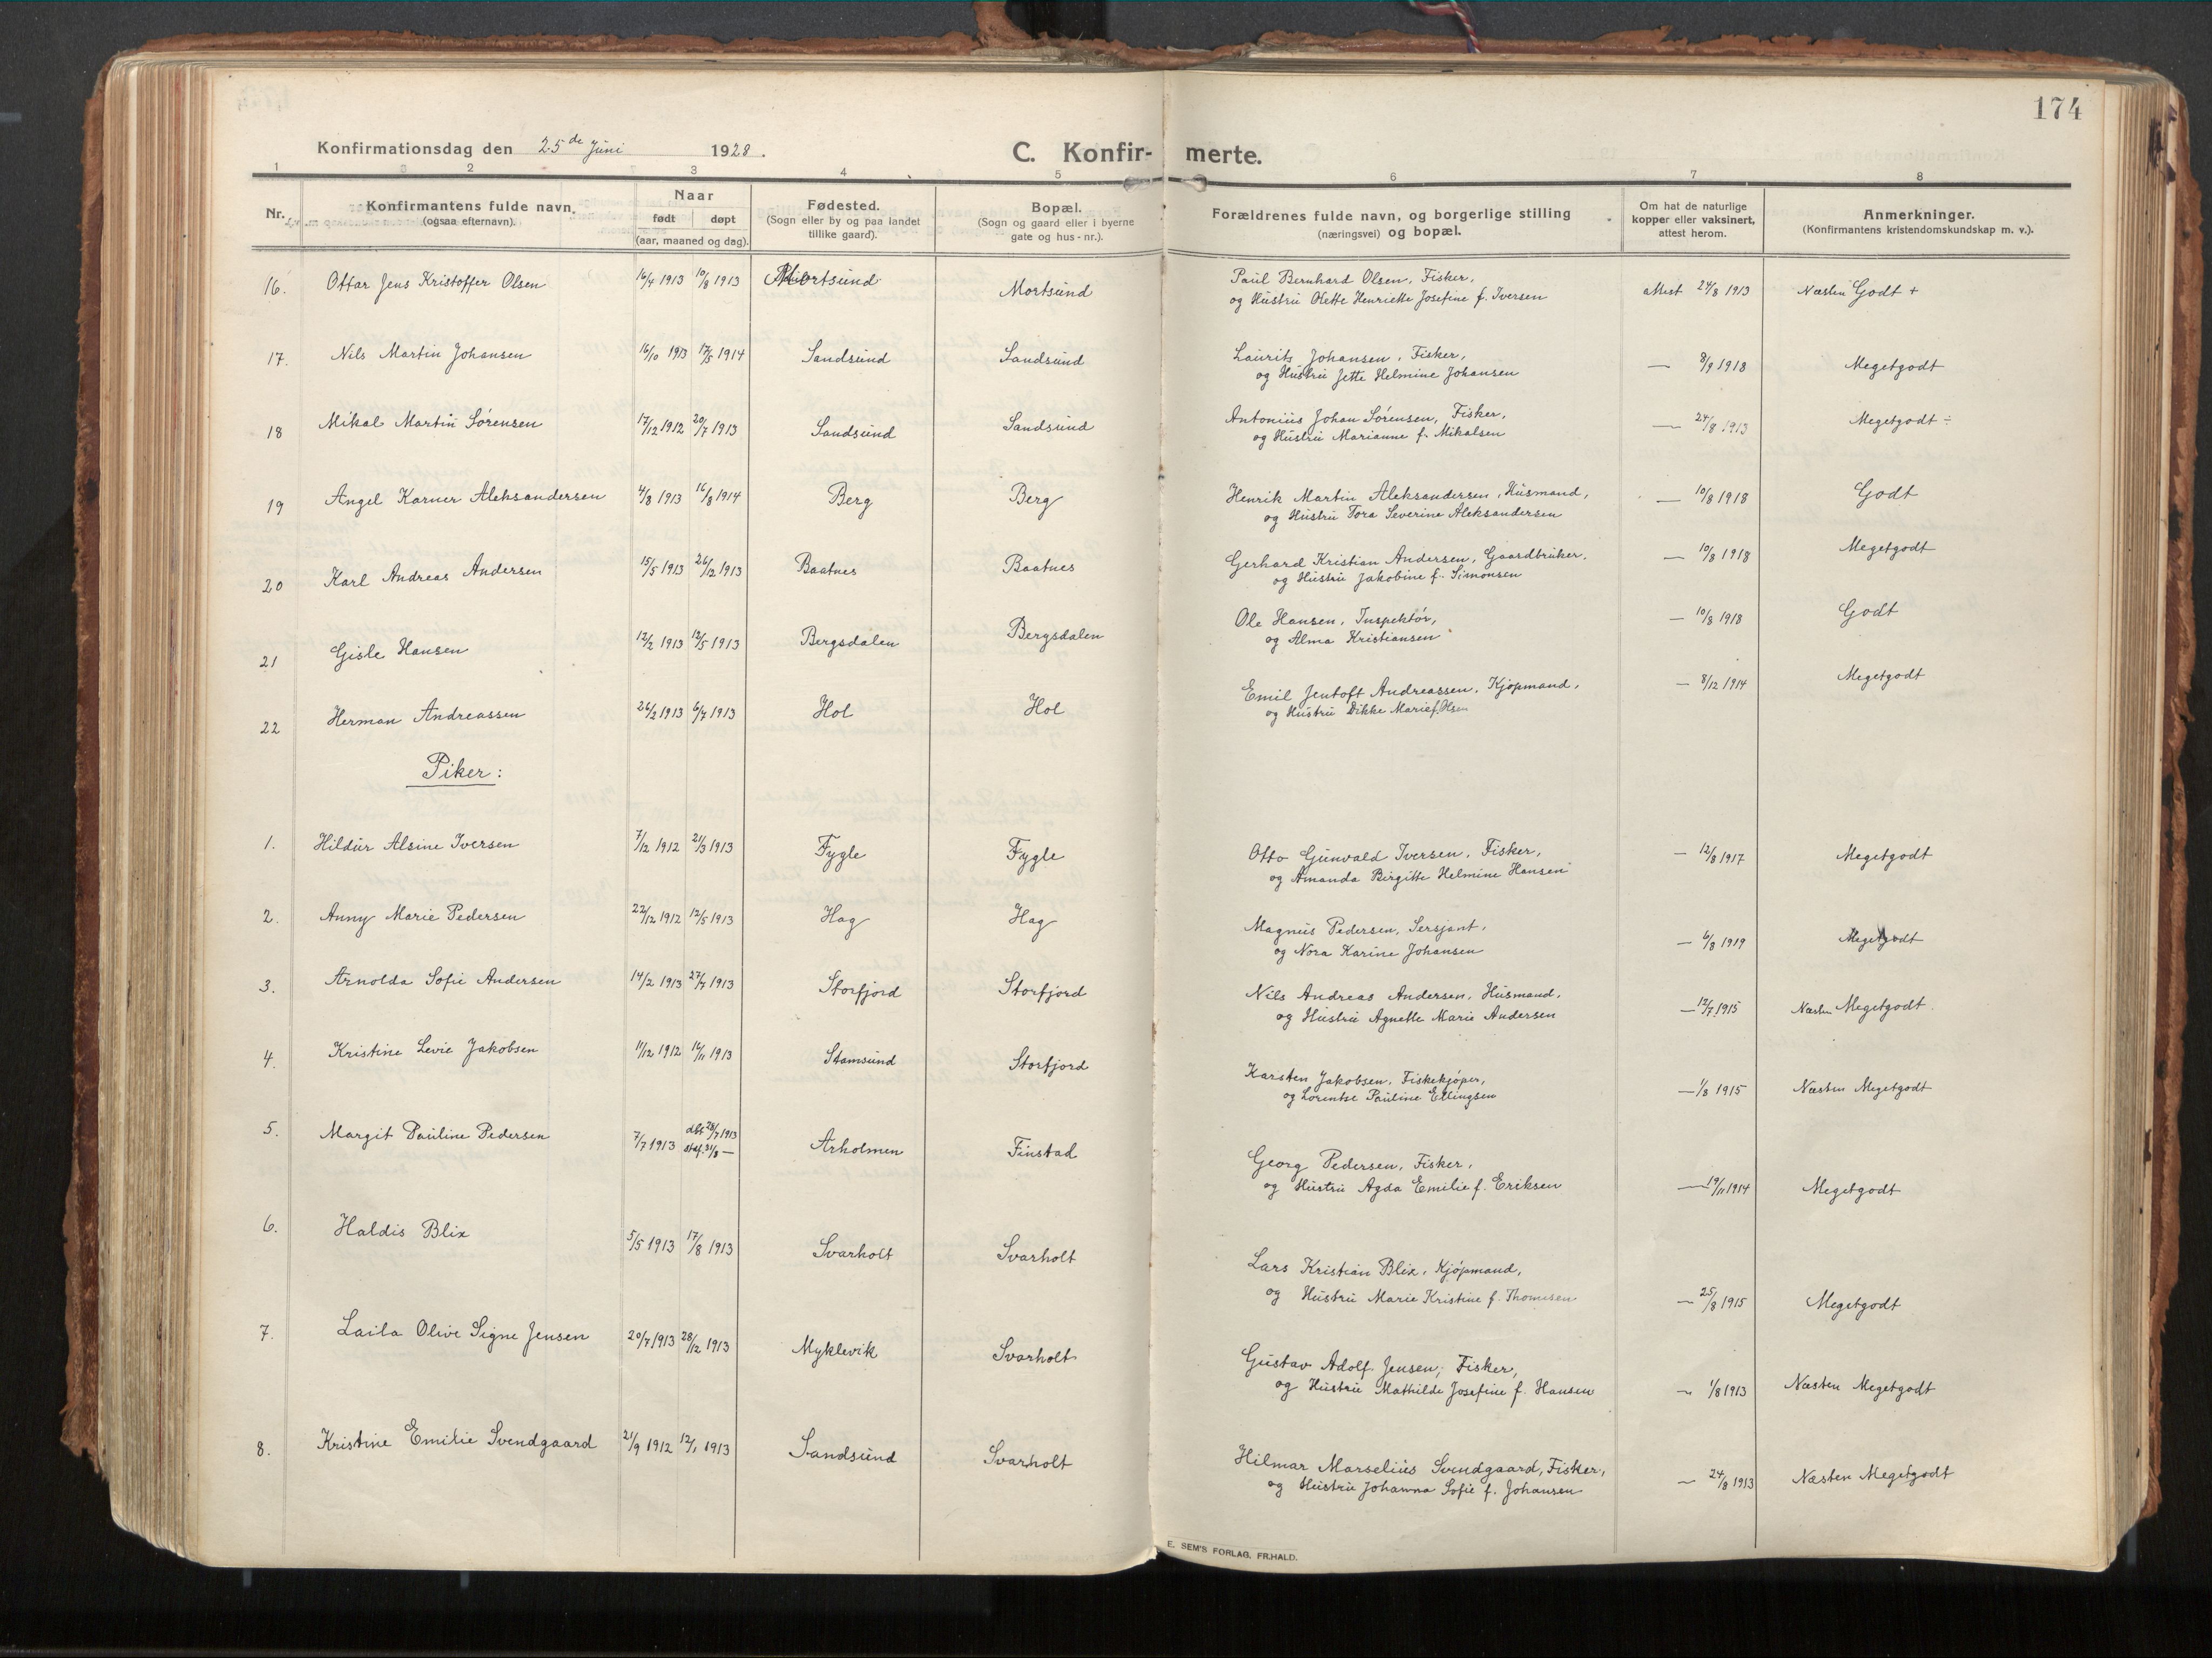 174
Konfirmationsdag den 25de Juni 1928.
C. Konfir- merte.
1 2 3 4 5 6 7 8
Nr.
Konfirmantens fulde navn.
(ogsaa efternavn).
Naar
født døpt
(aar, maaned og dag).
Fødested.
(Sogn eller by og paa landet
tillike gaard).
Bopæl.
(Sogn og gaard eller i byerne
gate og hus-nr.).
Forældrenes fulde navn, og borgerlige stilling
(næringsvei) og bopæl.
Om hat de naturlige
kopper eller vaksinert,
attest herom.
Anmerkninger.
(Konfirmantens kristendomskundskap m. v.).
16. Ottar Jens Kristoffer Olsen 16/4 1913 10/8 1913 Mortsund Mortsund Paul Bernhard Olsen, Fisker, attest 24/8 1913 Næsten Godt +
og Hustru Olette Henriette Josefine f. Iversen
17. Nils Martin Johansen 16/10 1913 17/5 1914 Sandsund Sandsund Laurits Johansen, Fisker, — 8/9 1918 Megetgodt
og Hustru Jette Helmine Johansen
18 Mikal Martin Sørensen 17/12 1912 20/7 1913 Sandsund Sandsund Antonius Johan Sørensen, Fisker, — 24/8 1913 Megetgodt ÷
og Hustru Marianne f. Mikalsen
19 Angel Karner Aleksandersen 4/8 1913 16/8 1914 Berg Berg Henrik Martin Aleksandersen, Husmand, — 10/8 1918 Godt
og Hustru Tora Severine Aleksandersen
20 Karl Andreas Andersen 15/5 1913 26/12 1913 Baatnes Baatnes Gerhard Kristian Andersen, Gaardbruker. — 10/8 1918 Megetgodt
og Hustru Jakobine f. Simonsen
21 Gisle Hansen 12/2 1913 12/5 1913 Bergsdalen Bergsdalen Ole Hansen, Inspektør, — 10/8 1918 Godt
og Alma Kristiansen
22 Herman Andreassen 26/2 1913 6/7 1913 Hol Hol Emil Jentoft Andreassen, Kjøpmand, — 8/12 1914 Megetgodt
og Hustru Dikke Marie f. Olsen
Piker:
1. Hildur Alsine Iversen 7/12 1912 21/3 1913 Fygle Fygle Otto Gunvald Iversen, Fisker, — 12/8 1917 Megetgodt
og Amanda Birgitte Helmine Hansen
2. Anny Marie Pedersen 22/12 1912 12/5 1913 Hag Hag Magnus Pedersen, Sersjant, — 6/8 1919 Megetgodt
og Nora Karine Johansen
3. Arnolda Sofie Andersen 14/2 1913 27/7 1913 Storfjord Storfjord Nils Andreas Andersen, Husmand, — 12/7 1915 Næsten Megetgodt.
og Hustru Agnette Marie Andersen
4. Kristine Levie Jakobsen 11/12 1912 16/11 1913 Stamsund Storfjord Karsten Jakobsen, Fiskekjøper, — 1/8 1915 Næsten Megetgodt
og Lorentse Pauline Ellingsen
5. Margit Pauline Pedersen 7/7 1913 dbt 28/7 1913 Arholmen Finstad Georg Pedersen, Fisker, — 19/11 1914 Megetgodt
stdf. 31/8 —
og Hustru Agda Emilie f. Eriksen
6. Haldis Blix 5/5 1913 17/8 1913 Svarholt Svarholt Lars Kristian Blix, Kjøpmand, — 25/8 1915 Megetgodt
og Hustru Marie Kristine f. Thomesen
7. Laila Olive Signe Jensen 20/7 1913 28/12 1913 Myklevik Svarholt Gustav Adolf Jensen, Fisker, — 1/8 1913 Næsten Megetgodt
og Hustru Mathilde Josefine f. Hansen
8. Kristine Emilie Svendgaard 21/9 1912 12/1 1913 Sandsund Svarholt Hilmar Marselius Svendgaard, Fisker, — 24/8 1913 Næsten Megetgodt
og Hustru Johanna Sofie f. Johansen
E. SEM'S FORLAG, FR.HALD.